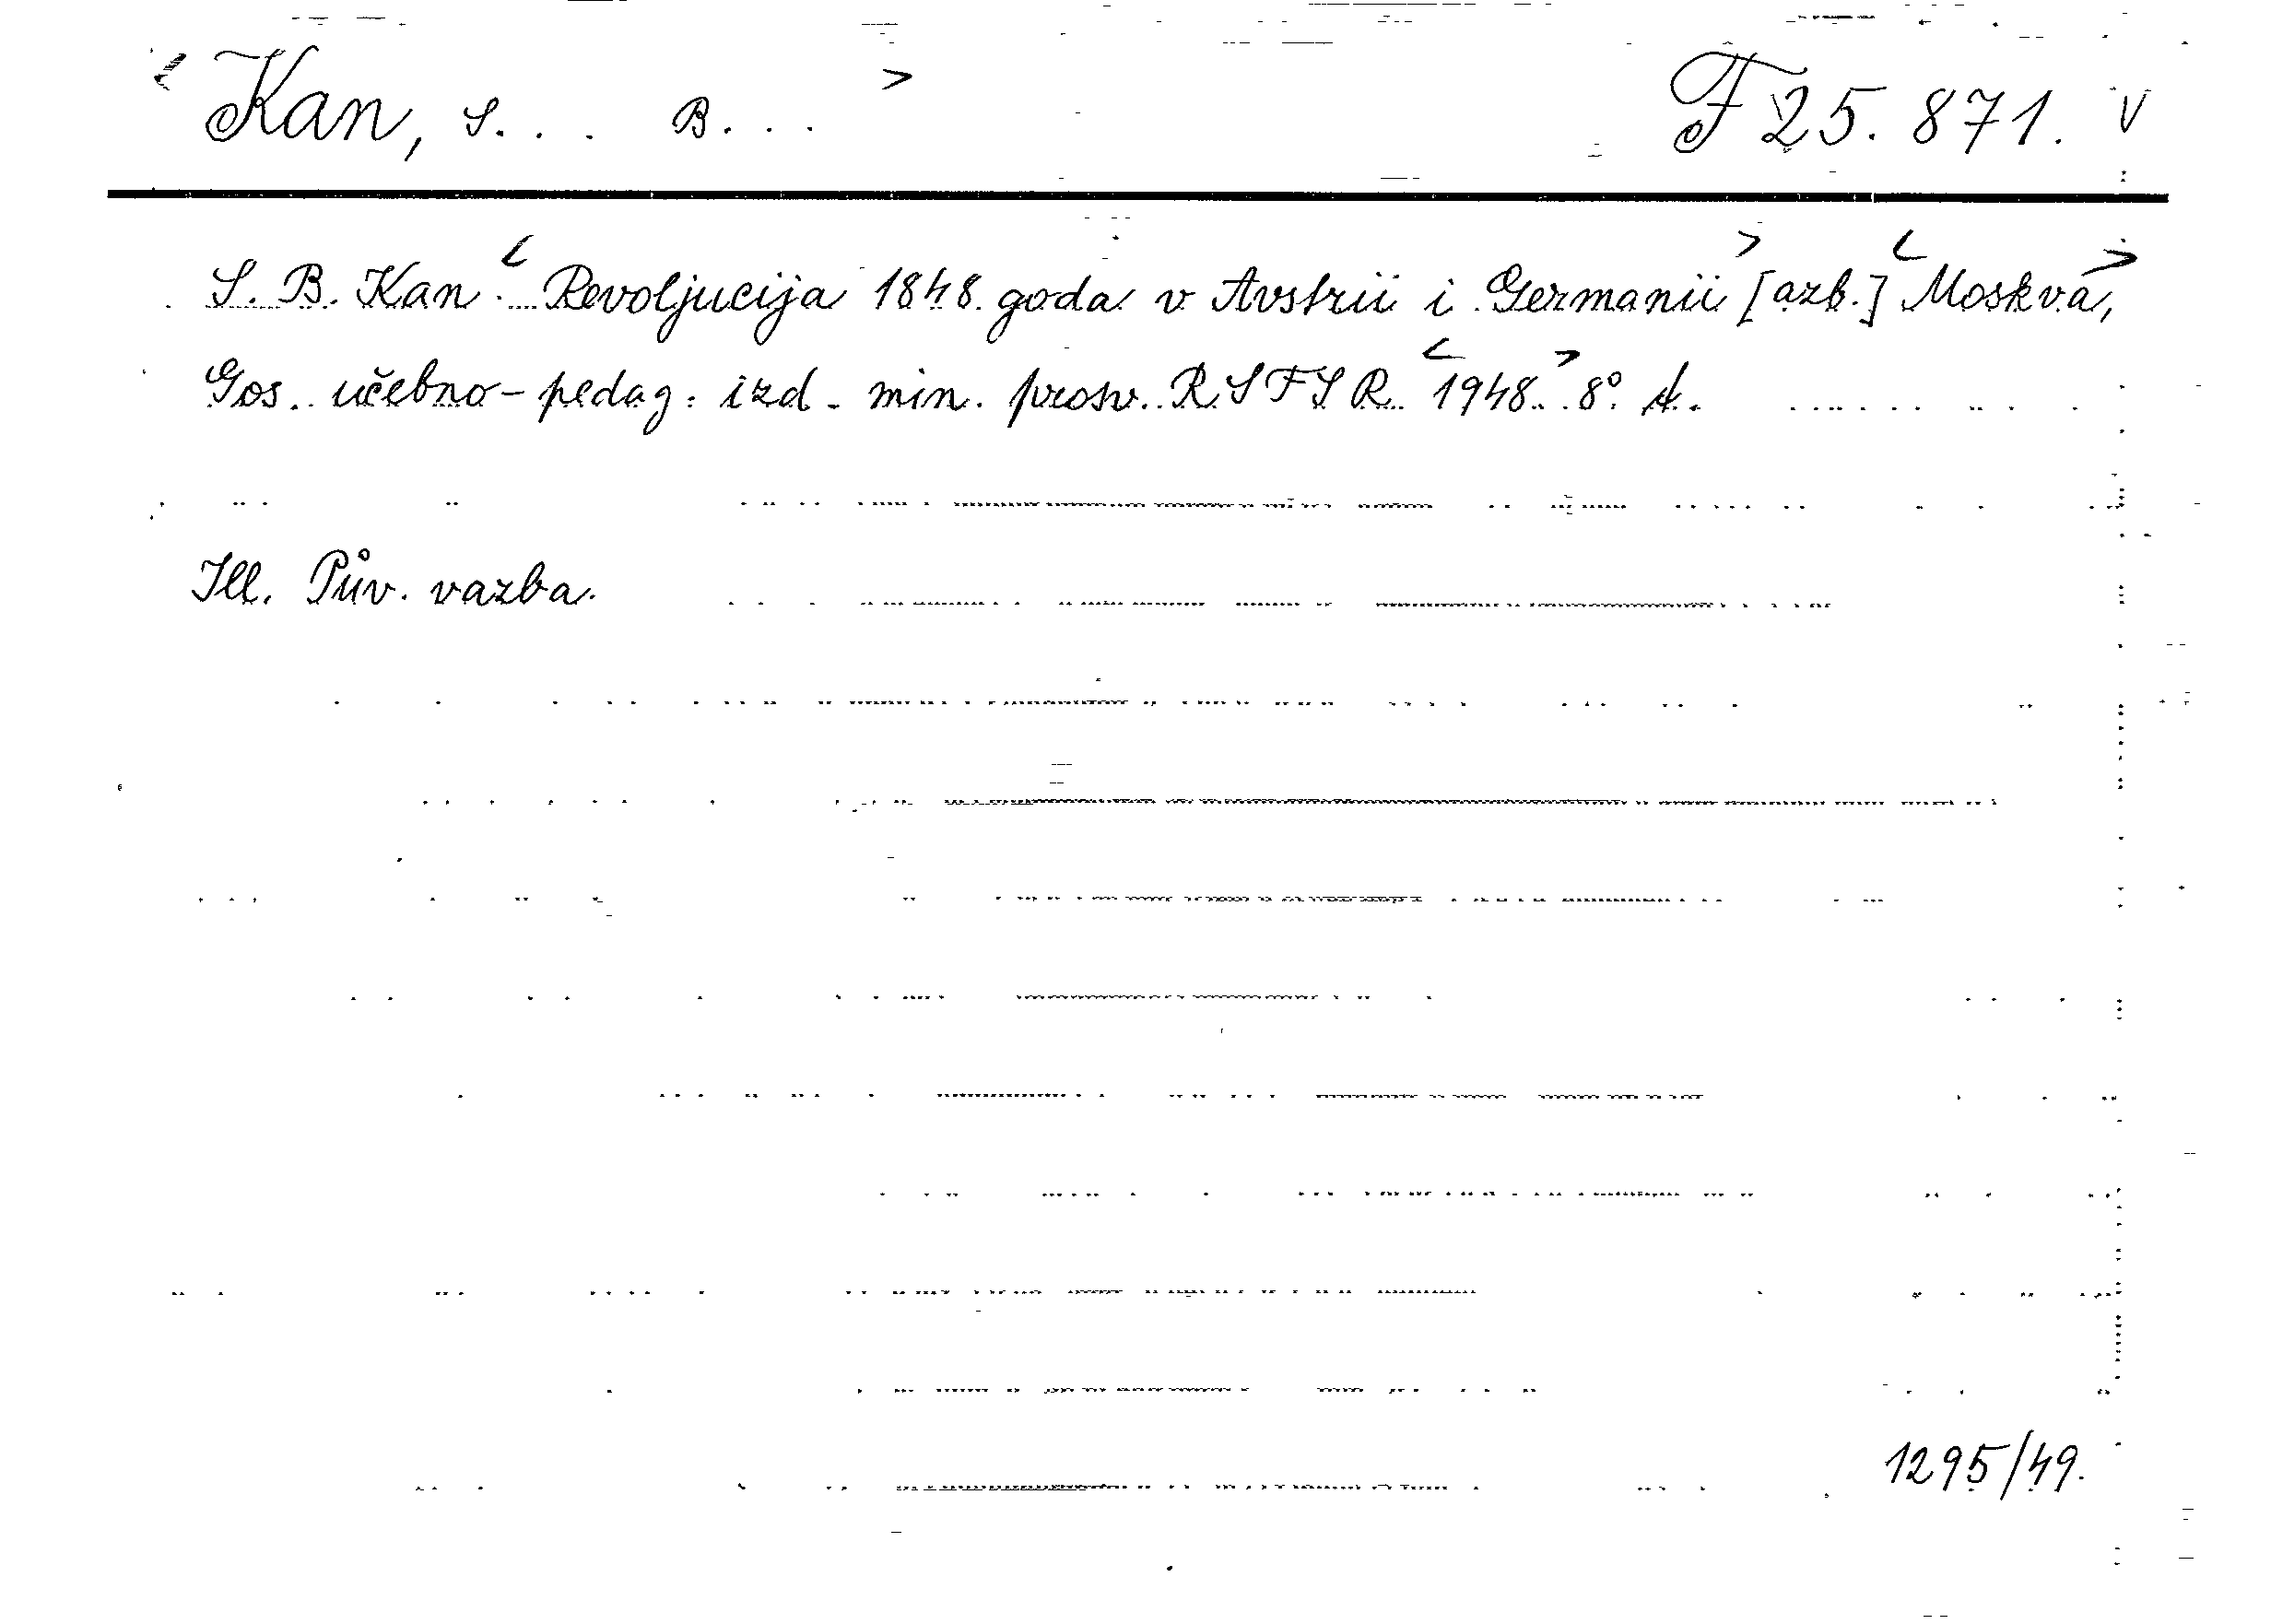 < Kan, S... B... > F 25.871. V
S. B. Kan. < Revoljucija 1848 goda v Avstrii i Germanii > [azb.] < Moskva, >
Gos. učebno-pedag. izd. min. prosv. RSFSR < 1948. > 8°.
Ill. Pův. vazba.
1295/49.